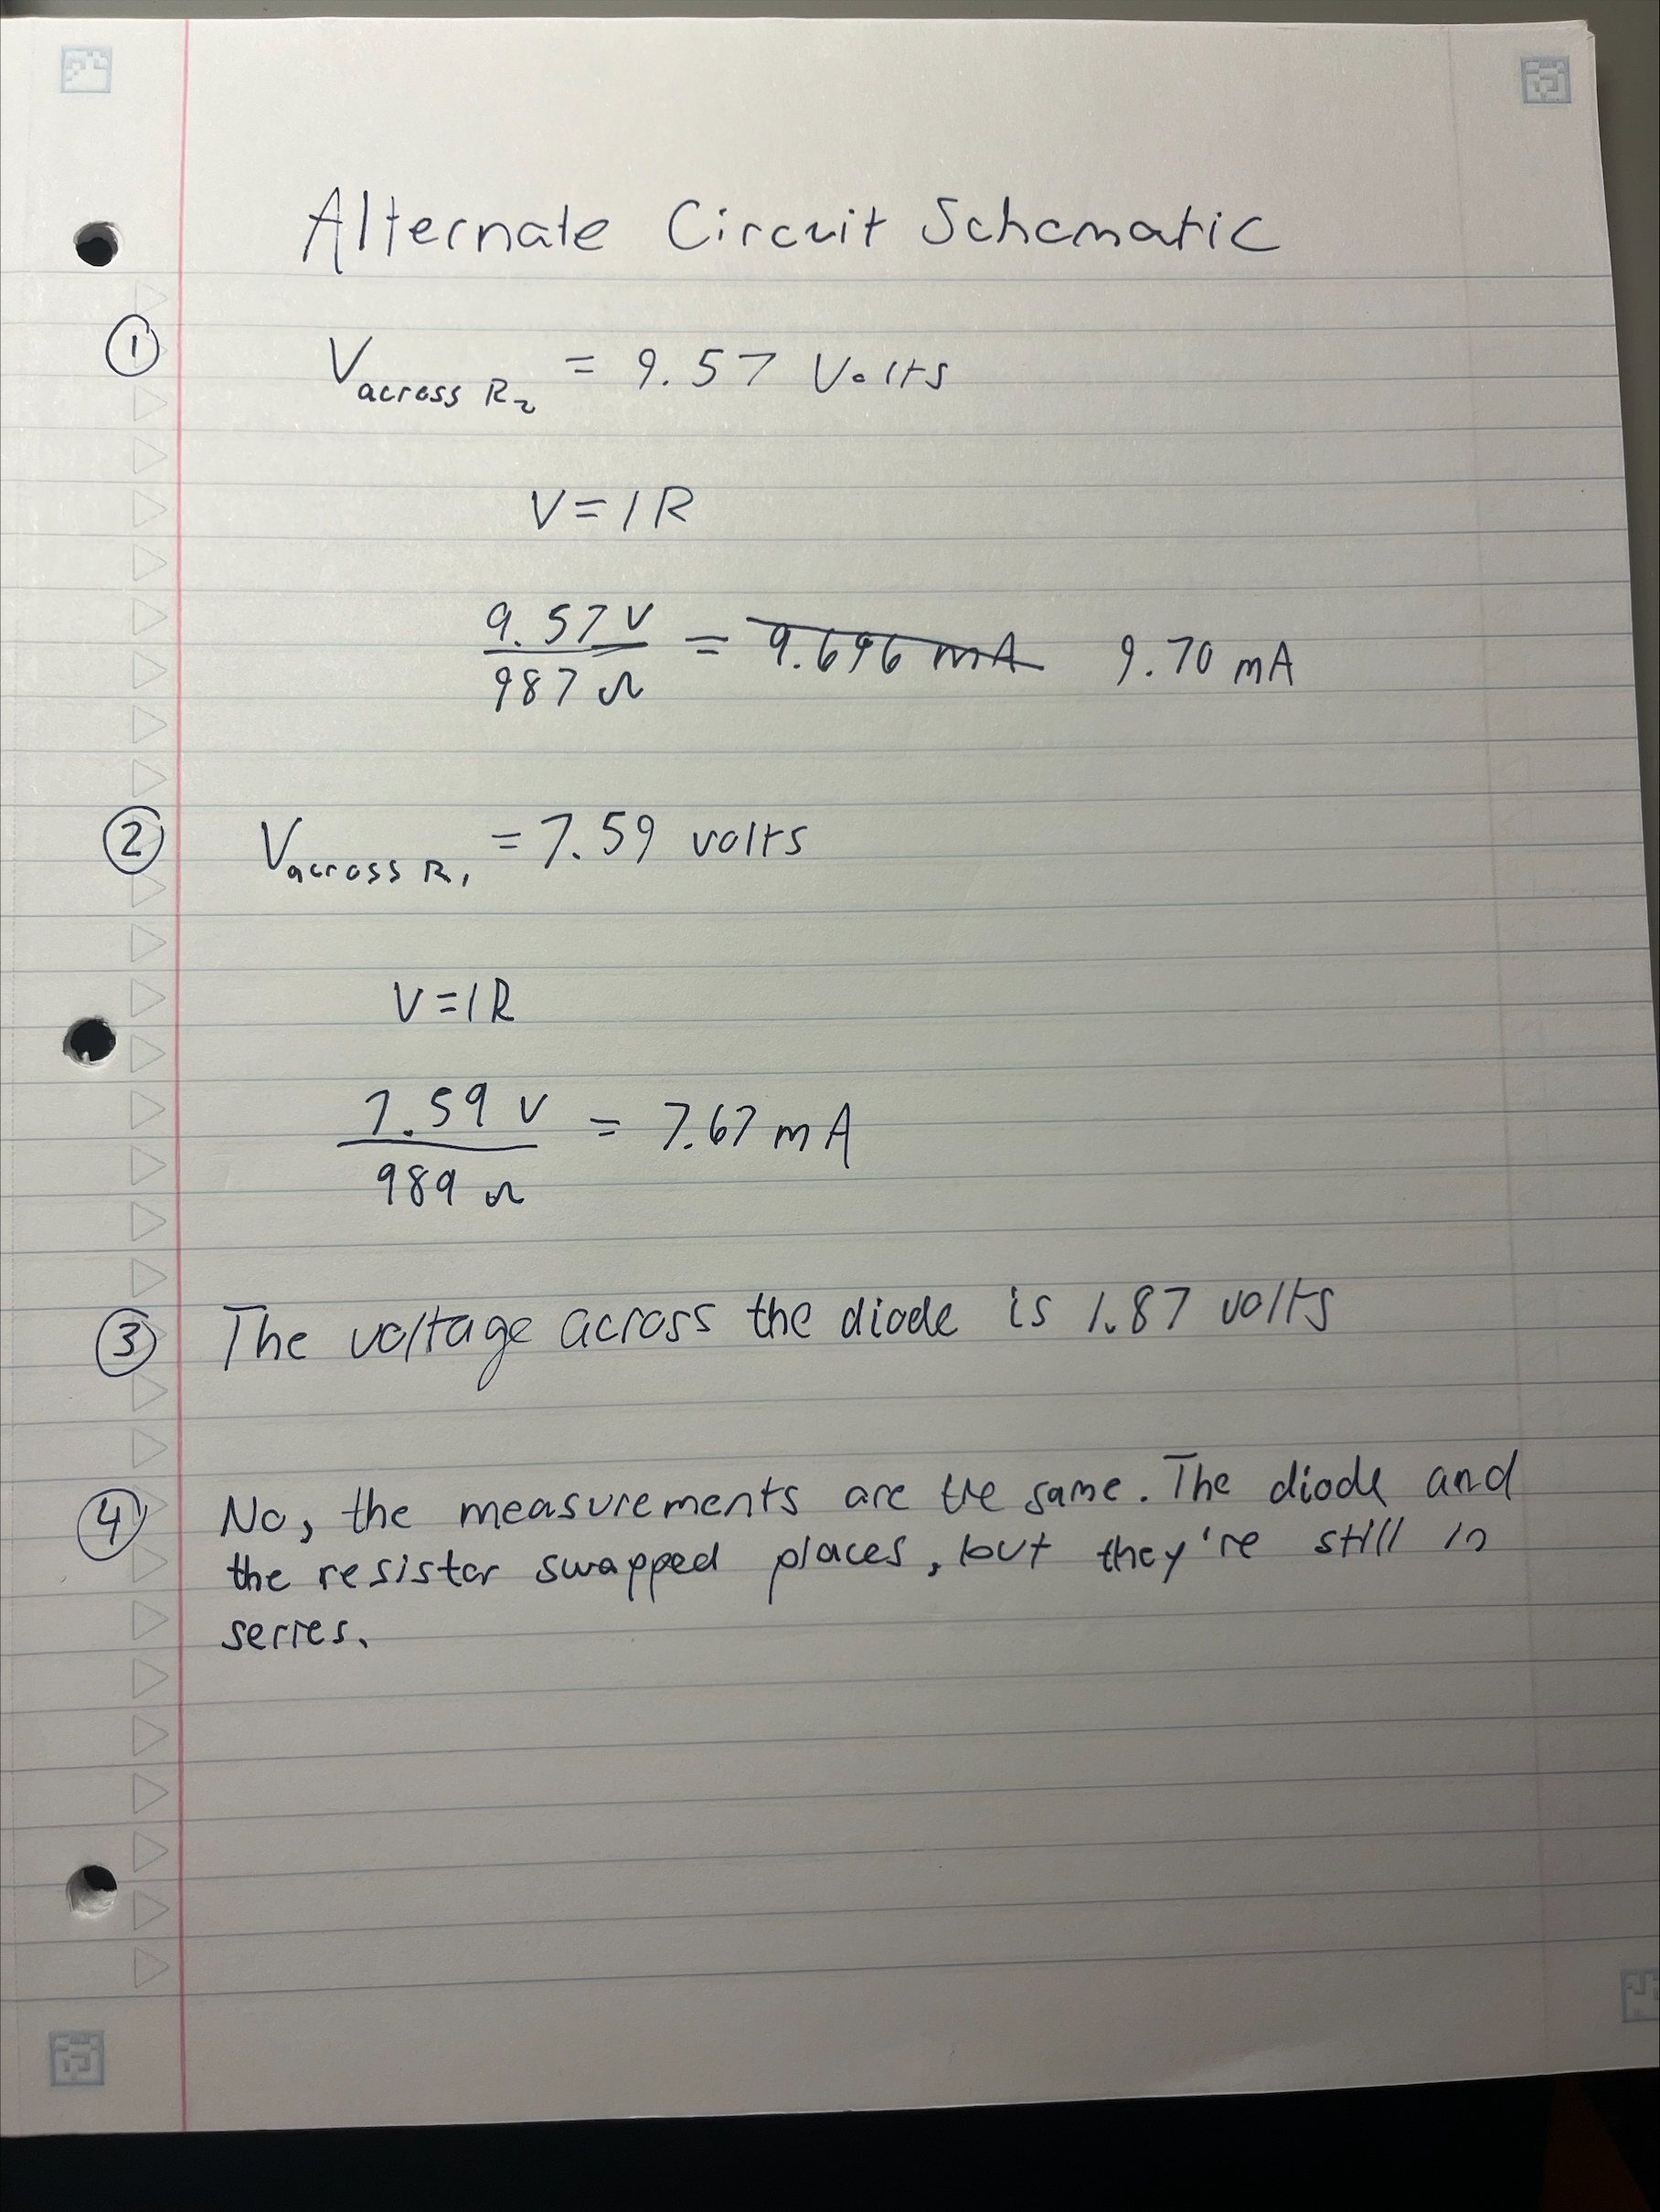 Alternate Circuit Schematic
① V across R₂ = 9.57 Volts
V=IR
9.57 V
987 Ω
= 9.696 mA 9.70 mA
② V across R₁ = 7.59 volts
V=IR
7.59 V
989 Ω
= 7.67 mA
③ The voltage across the diode is 1.87 volts
④ No, the measurements are the same. The diode and
the resistor swapped places, but they're still in
series.